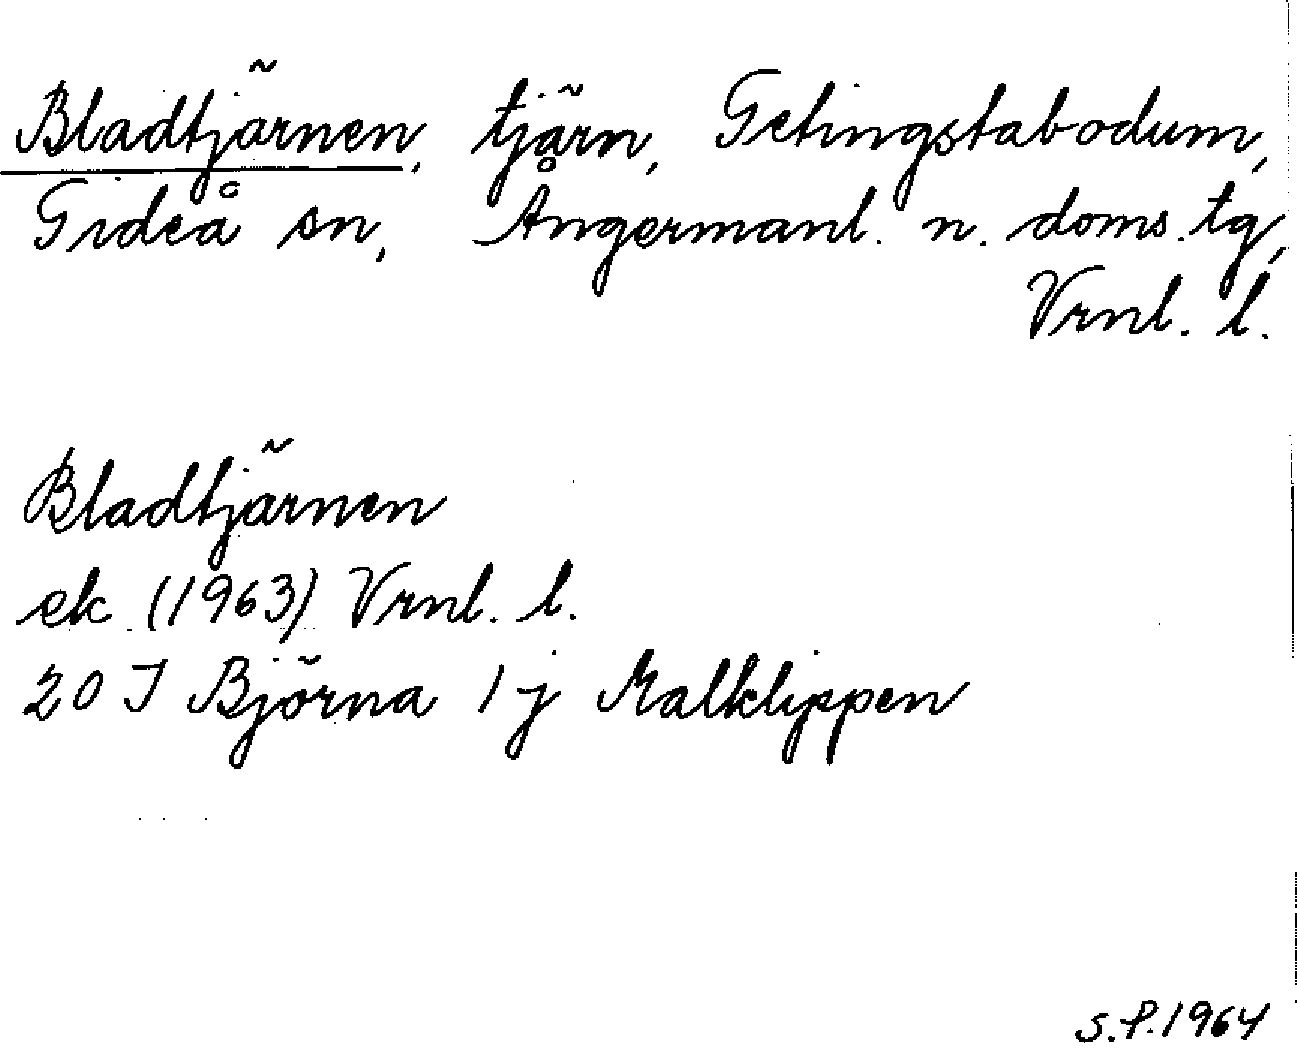 Bladtjärnen, tjärn, Getingstabodum,
Gideå sn, Ångermanl. n. doms. tg,
Vrnl. l.
Bladtjärnen
ek (1963) Vrnl. l.
20 I Björna 1 j Malklippen
S.P. 1964